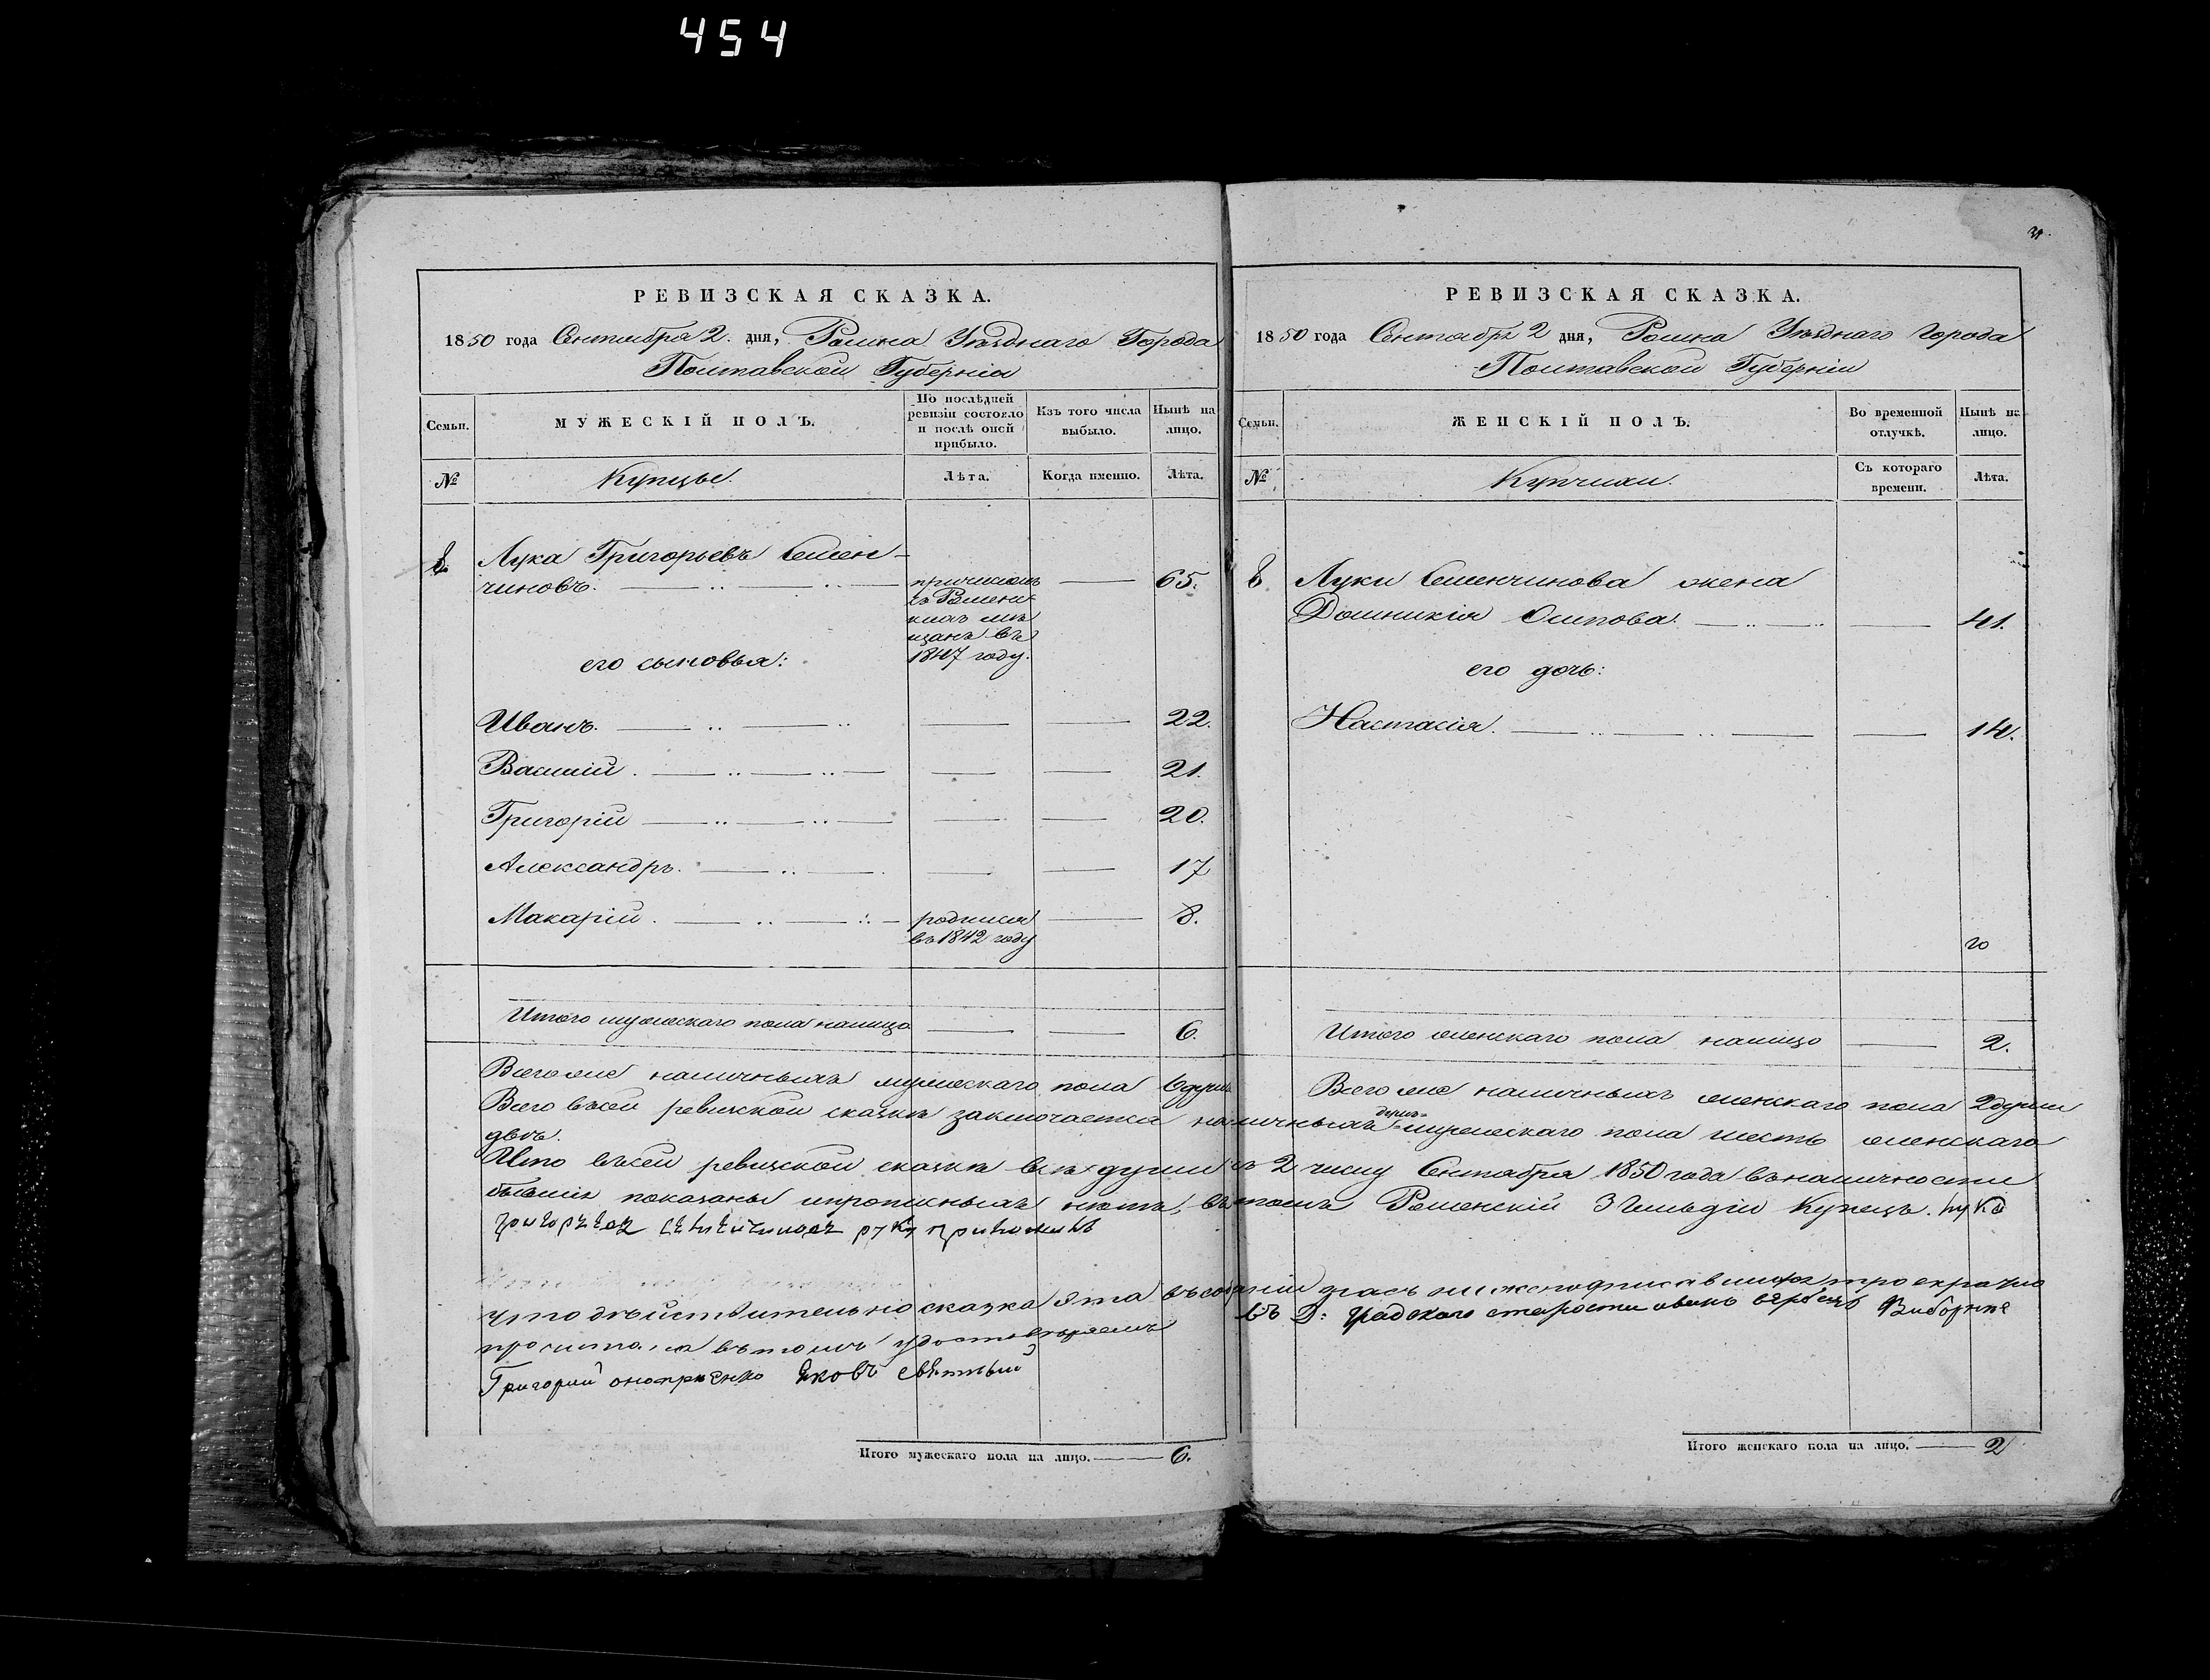 454
31.
РЕВИЗСКАЯ СКАЗКА.
1850 года Сентября 2. дня, Ромна Уѣзднаго Города
Полтавской Губерніи
Семьи. МУЖЕСКІЙ ПОЛЪ. По послѣдней ревизіи состояло и послѣ оной прибыло. Изъ того числа выбыло. Нынѣ на лицо.
№ Купцы. Лѣта. Когда именно. Лѣта.
8 Лука Григорьевъ Семен-
чиновъ. причислен 65.
къ Роменс
кихъ мѣ
щанъ въ
1847 году.
его сыновья:
Иванъ. 22.
Василій. 21.
Григорій 20.
Александръ. 17
Макарій. родился 8.
въ 1842 году
Итого мужескаго пола налицо 6.
РЕВИЗСКАЯ СКАЗКА.
1850 года Сентября 2 дня, Ромна Уѣзднаго Города
Полтавской Губерніи
Семьи. ЖЕНСКІЙ ПОЛЪ. Во временной отлучкѣ. Нынѣ на лицо.
№ Купчихи. Съ котораго времени. Лѣта.
8 Луки Семенчинова жена
Домникія Осипова. 41.
его дочь:
Настасія. 14.
Итого женскаго пола налицо 2.
Всего же наличныхъ мужескаго пола 6 душъ
Всего же наличныхъ женскаго пола 2 души
Всего въсей ревизской сказкѣ заключается наличныхъ душъ мужескаго пола шесть женскаго
двѣ.
Что въсей ревизской сказкѣ всѣ души къ 2 числу Сентября 1850 года вналичности
бывшія показаны ипрописныхъ нѣтъ, втомъ Роменскій 3 Гильдіи Купецъ. лука
григорьевъ семенчиновъ руку приложилъ
что дѣйствительно сказка эта въсобраніи насъ нижеподписавшихся
прочитана втомъ удостовѣряемъ
Градского старости Виборние
Григорий оноприенко Яковъ
Итого мужескаго пола на лицо. 6.
Итого женскаго пола на лицо. 2